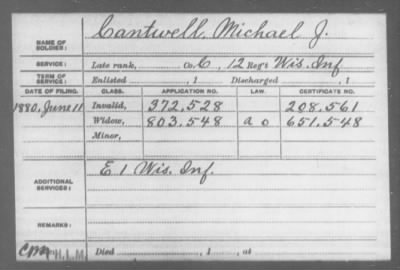 Cantwell, Michael J.
NAME OF SOLDIER:
SERVICE: Late rank, Co. C, 12 Reg't Wis. Inf
TERM OF SERVICE: Enlisted , 1 Discharged , 1
DATE OF FILING. CLASS. APPLICATION NO. LAW. CERTIFICATE NO.
1880, June 11 Invalid, 372.528 208.561
Widow, 803.548 a o 651.548
Minor,
E 1 Wis. Inf.
ADDITIONAL SERVICES:
REMARKS:
Died , 1 , at